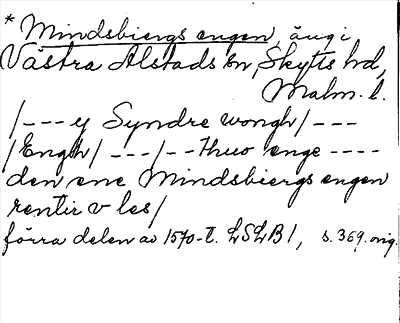 * Mindsbiergs engen, äng i
Västra Alstads sn, Skytts hd,
Malm. l.
/--- ey Syndre wongh/---
/Engh/ ---/-- thuo enge ----
den ene Mindsbiergs engen
rentir v les/
förra delen av 1570-t. LSLB1, s. 369. orig.